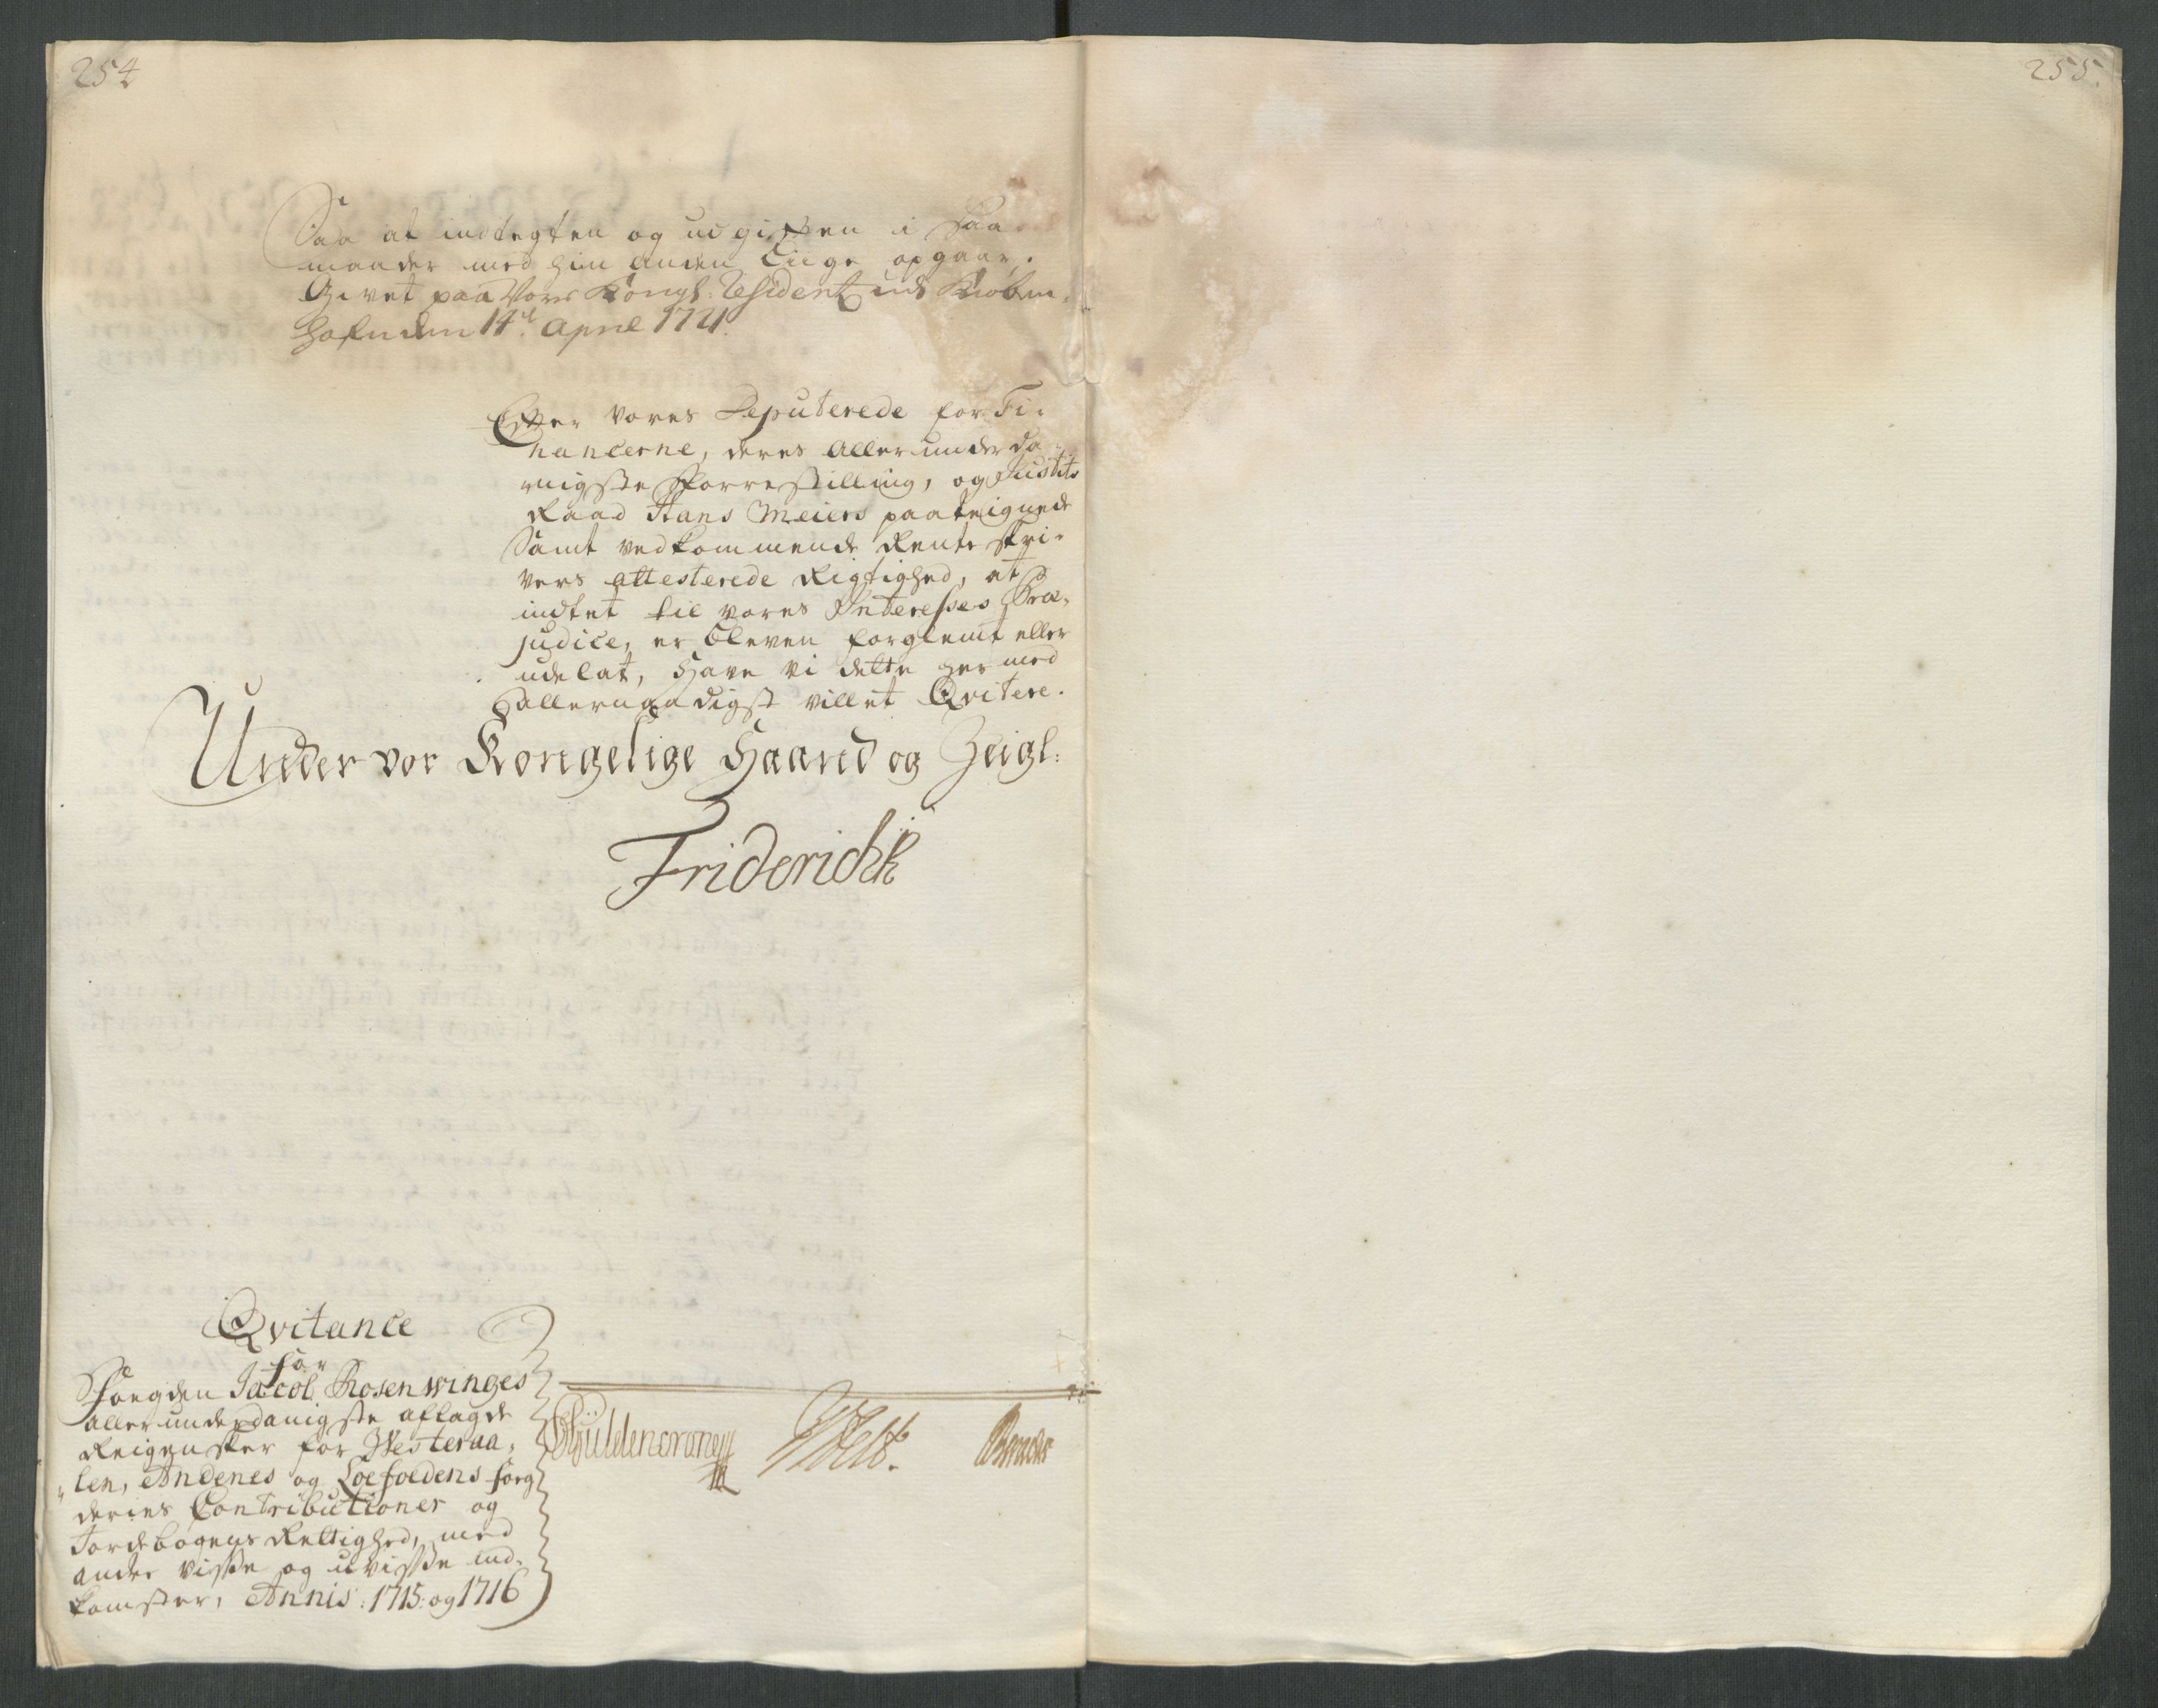 254
255.
Saa at indtegten og udgiften i saa
maader med hin anden Liige opgaar.
Givet paa Vores Kongl: Residentz udi Kiøben,
hafn den 14de April 1721.
Efter vores Deputerede for Fi-
nancerne, deres allerunderda-
nigste Forrestilling, og Justits
Raad Hans Meiers paateignede
Samt vedkommende Rente skri-
vers attesterede Rigtighed, at
indtet til vores Interesses Præ-
judice, er bleven forglemt eller
udelat, Have Vi dette her med
allernaadigst villet Qvitere.
Under vor Kongelige Haand og Zeigl:
Friderich
Qvitance
for
Foegden Jacob Rosenwinges
allerunderdanigste aflagde
Reigensker for Westeraa,
len, Andenes og Loefoedens fog
deries Contributioner og
Jordebogens Rettighed, med
andre visse og uvisse ind-
komster, Annis: 1715: og 1716
Güldencrone